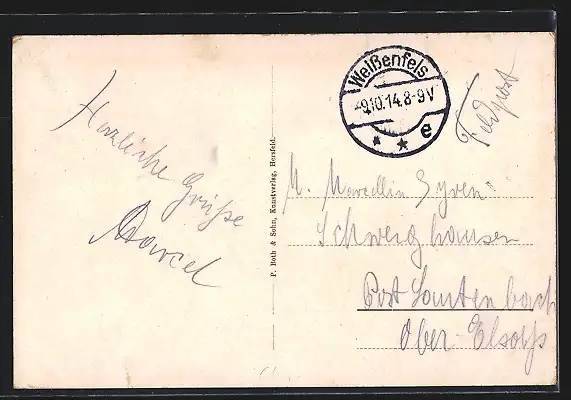 Herzliche Grüße
Marcel
P. Both & Sohn, Kunstverlag, Hersfeld.
Weißenfels
-9.10.14.8-9V
* * e
Feldpost
M. Marcellin
Schweighausen
Post Lautenbach
Ober-Elsass